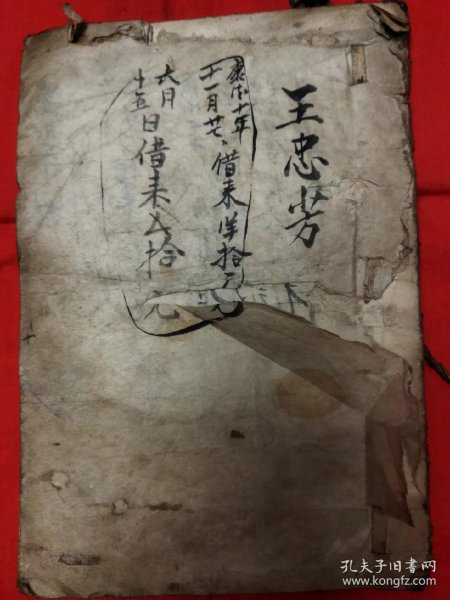 王忠芳
康德十年
十一月廿七日借来洋拾元
六月
十五日借来五拾元
孔夫子旧书网
www.kongfz.com